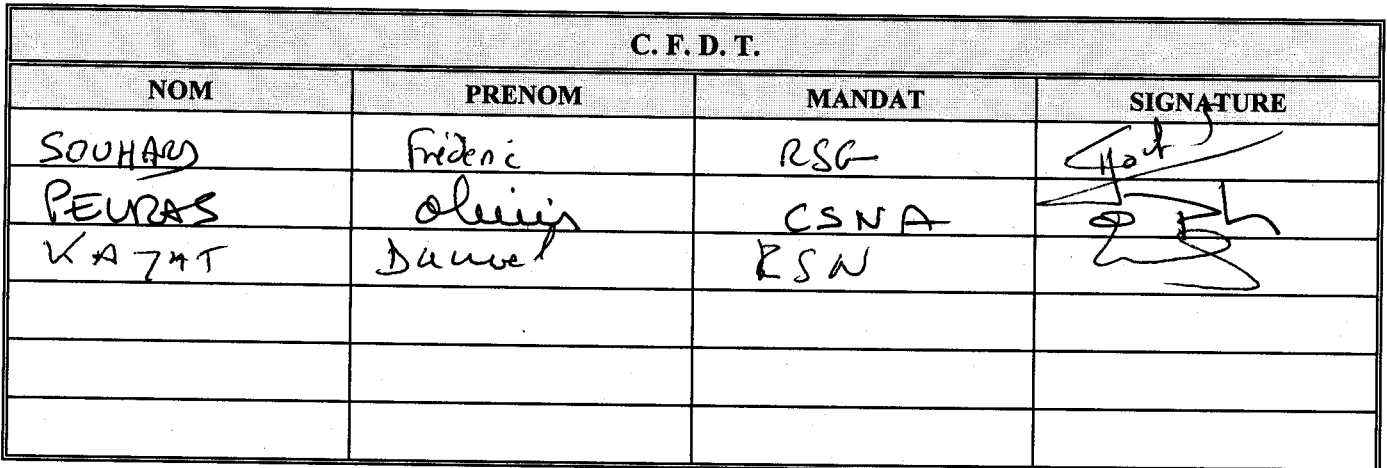 C. F. D. T.
NOM PRENOM MANDAT SIGNATURE
SOUHARD Frédéric RSG
PEURAS CSNA
KAZAT Daniel RSN